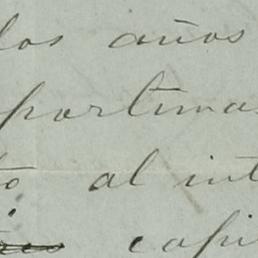 los años
portuna
to al int
capi